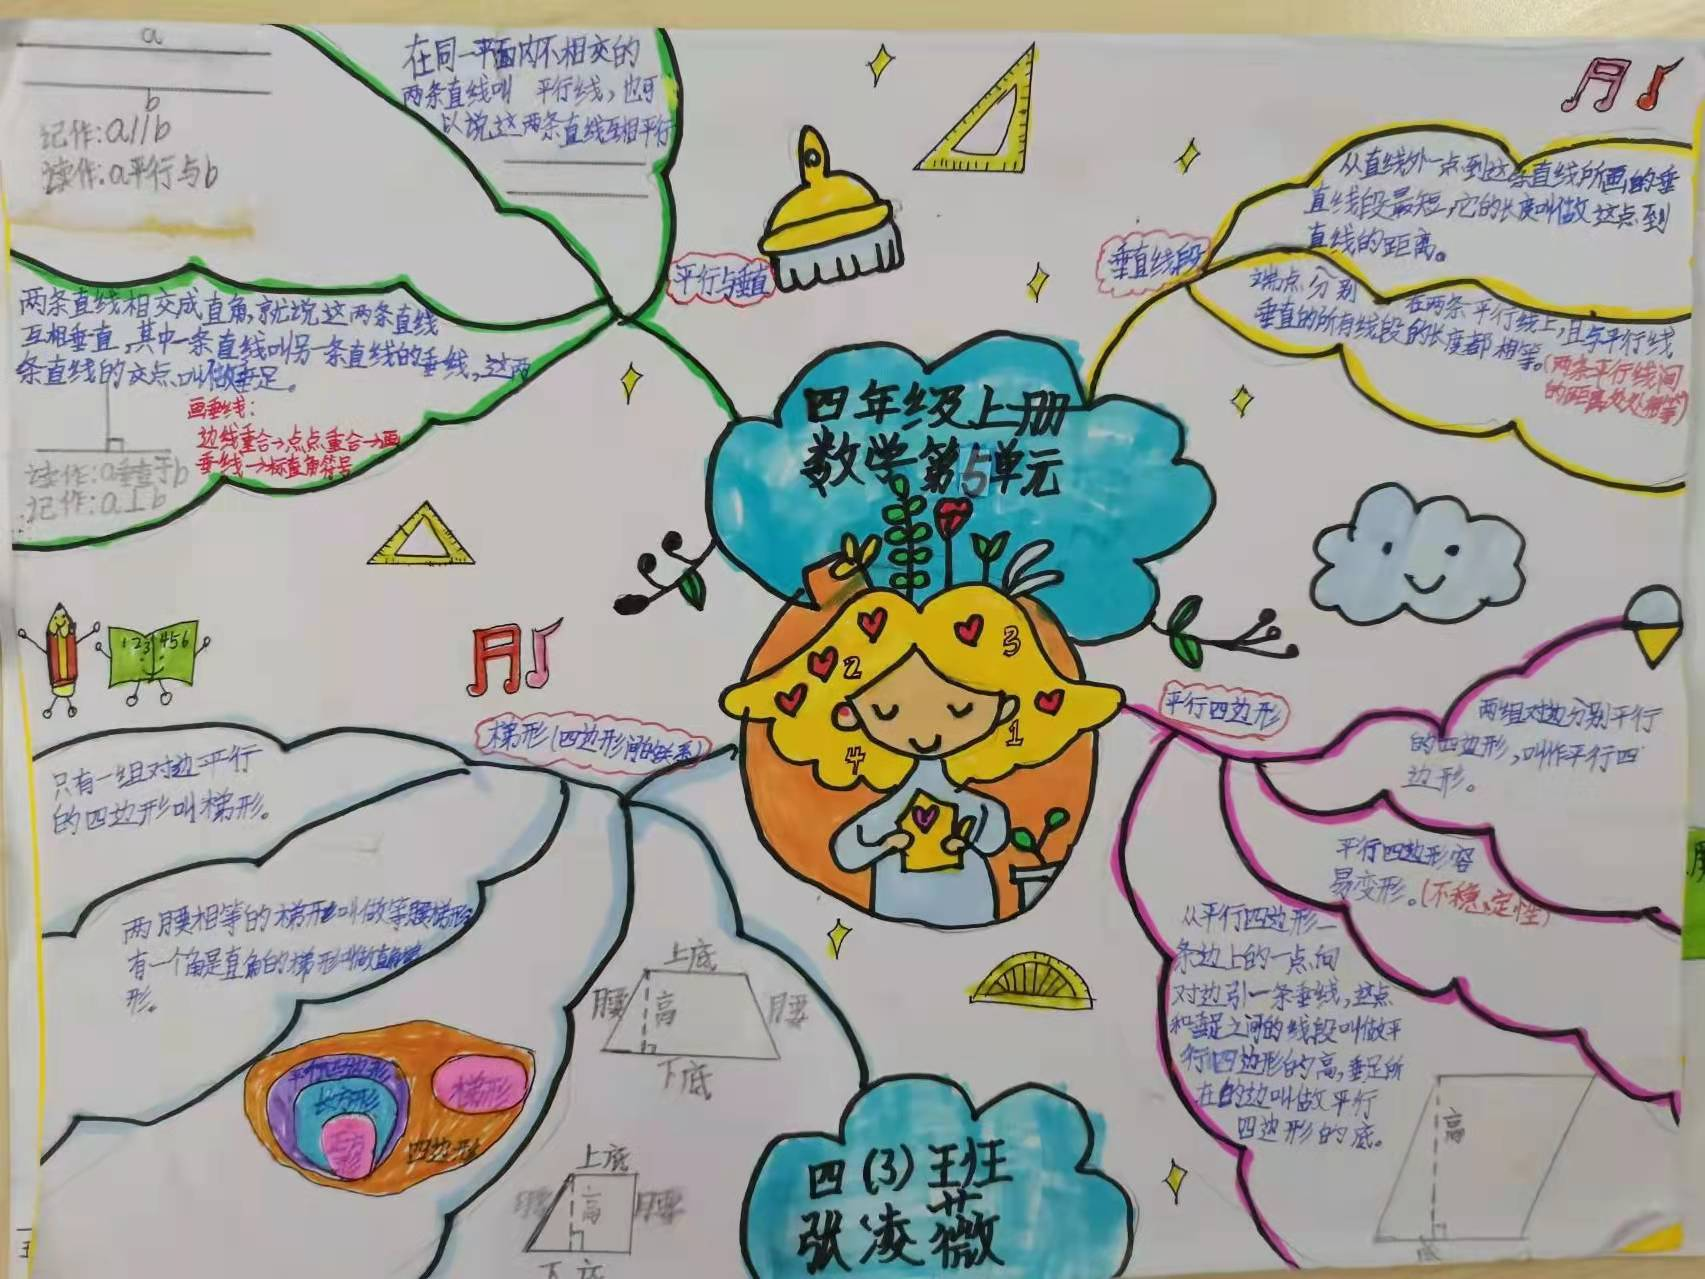 四年级上册
数学第5单元
平行与垂直
a
b
记作:a//b
读作:a平行与b
在同一平面内不相交的
两条直线叫 平行线，也可
以说这两条直线互相平行
两条直线相交成直角,就说这两条直线
互相垂直,其中一条直线叫另一条直线的垂线,这两
条直线的交点,叫做垂足。
画垂线:
边线重合→点点重合→画
垂线→标直角符号
读作:a垂直于b
记作:a⊥b
垂直线段
从直线外一点到这条直线所画的垂
直线段最短,它的长度叫做这点到
直线的距离。
端点分别
在两条平行线上,且与平行线
垂直的所有线段的长度都相等。
(两条平行线间
的距离处处相等)
123 456
2
3
4
1
梯形(四边形间的关系)
只有一组对边平行
的四边形叫梯形。
两腰相等的梯形叫做等腰梯形
有一个角是直角的梯形叫做直角梯
形。
平行四边形
长方形
正方形
梯形
四边形
上底
腰
高
腰
下底
上底
腰
高
腰
下底
平行四边形
两组对边分别平行
的四边形,叫作平行四
边形。
平行四边形容
易变形。(不稳定性)
从平行四边形一
条边上的一点向
对边引一条垂线,这点
和垂足之间的线段叫做平
行四边形的高,垂足所
在的边叫做平行
四边形的底。
高
底
四(3)班
张凌薇